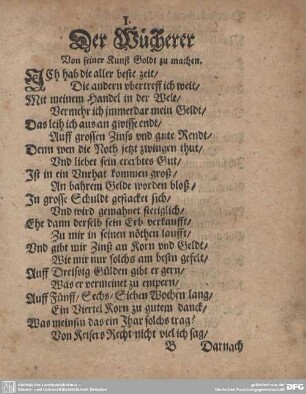 I.
Der Wücherer
Von seiner Kunst Goldt zu machen.
ICh hab die aller beste zeit/
Die andern vbertreff ich weit/
Mit meinem Handel in der Welt/
Vermehr ich immerdar mein Geldt/
Das leih ich aus an gwisse endt/
Auff grossen Zinss vnd gute Rendt/
Denn wen die Noth jetzt zwingen thut/
Vnd liebet sein ererbtes Gut/
Ist in ein Vnrhat kommen groß/
An bahrem Gelde worden bloß/
In grosse Schuldt gestacket sich/
Vnd wird gemahnet stetiglich/
Ehe dann derselb sein Erb verkaufft/
Zu mir in seinen nöthen laufft/
Vnd gibt mir Zinß an Korn vnd Geldt/
Wie mir nur solchs am besten gefelt/
Auff Dreissig Gülden gibt er gern/
Was er vermeinet zu empern/
Auff Fünff/ Sechs/ Sieben Wochen lang/
Ein Viertel Korn zu gutem danck/
Was meinstu das ein Jhar solchs trag?
Von Keisers Recht nicht viel ich sag/
B Darnach